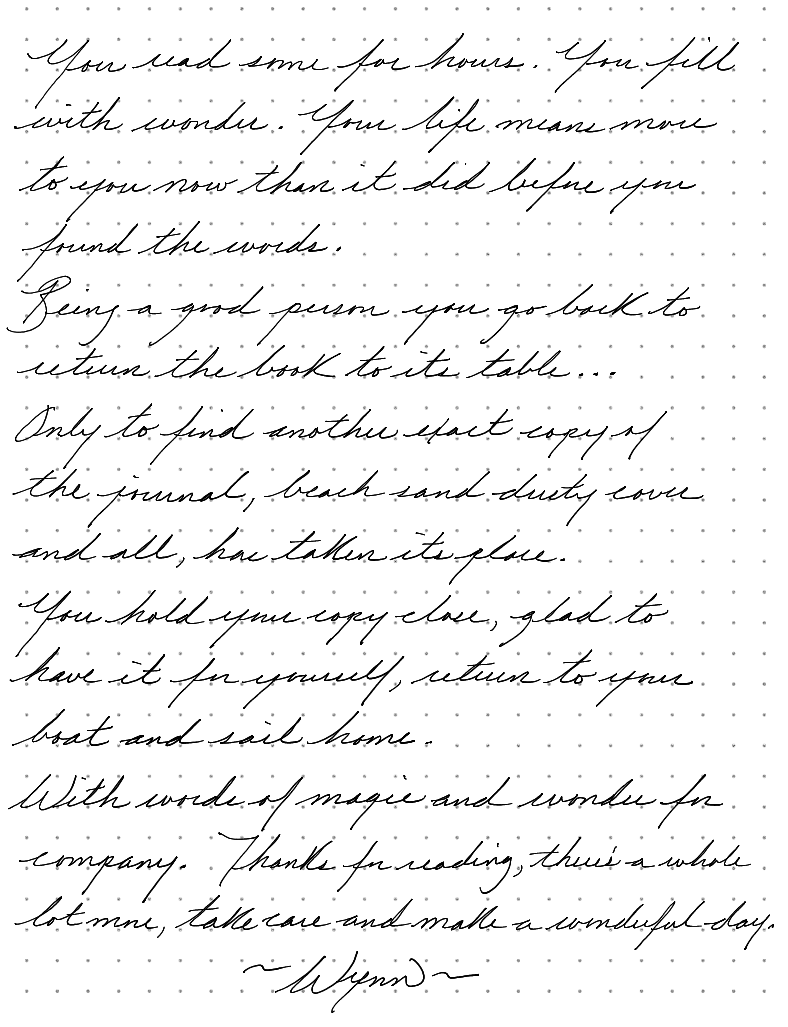 You read some for hours. You fill
with wonder. Your life means more
to you now than it did before you
found the words.
Being a good person you go back to
return the book to its table...
Only to find another exact copy of
the journal, beach sand dusty cover
and all, has taken its place.
You hold your copy close, glad to
have it for yourself, return to your
boat and sail home.
With words of magic and wonder for
company. Thanks for reading, there's a whole
lot more, take care and make a wonderful day.
~Wynn~